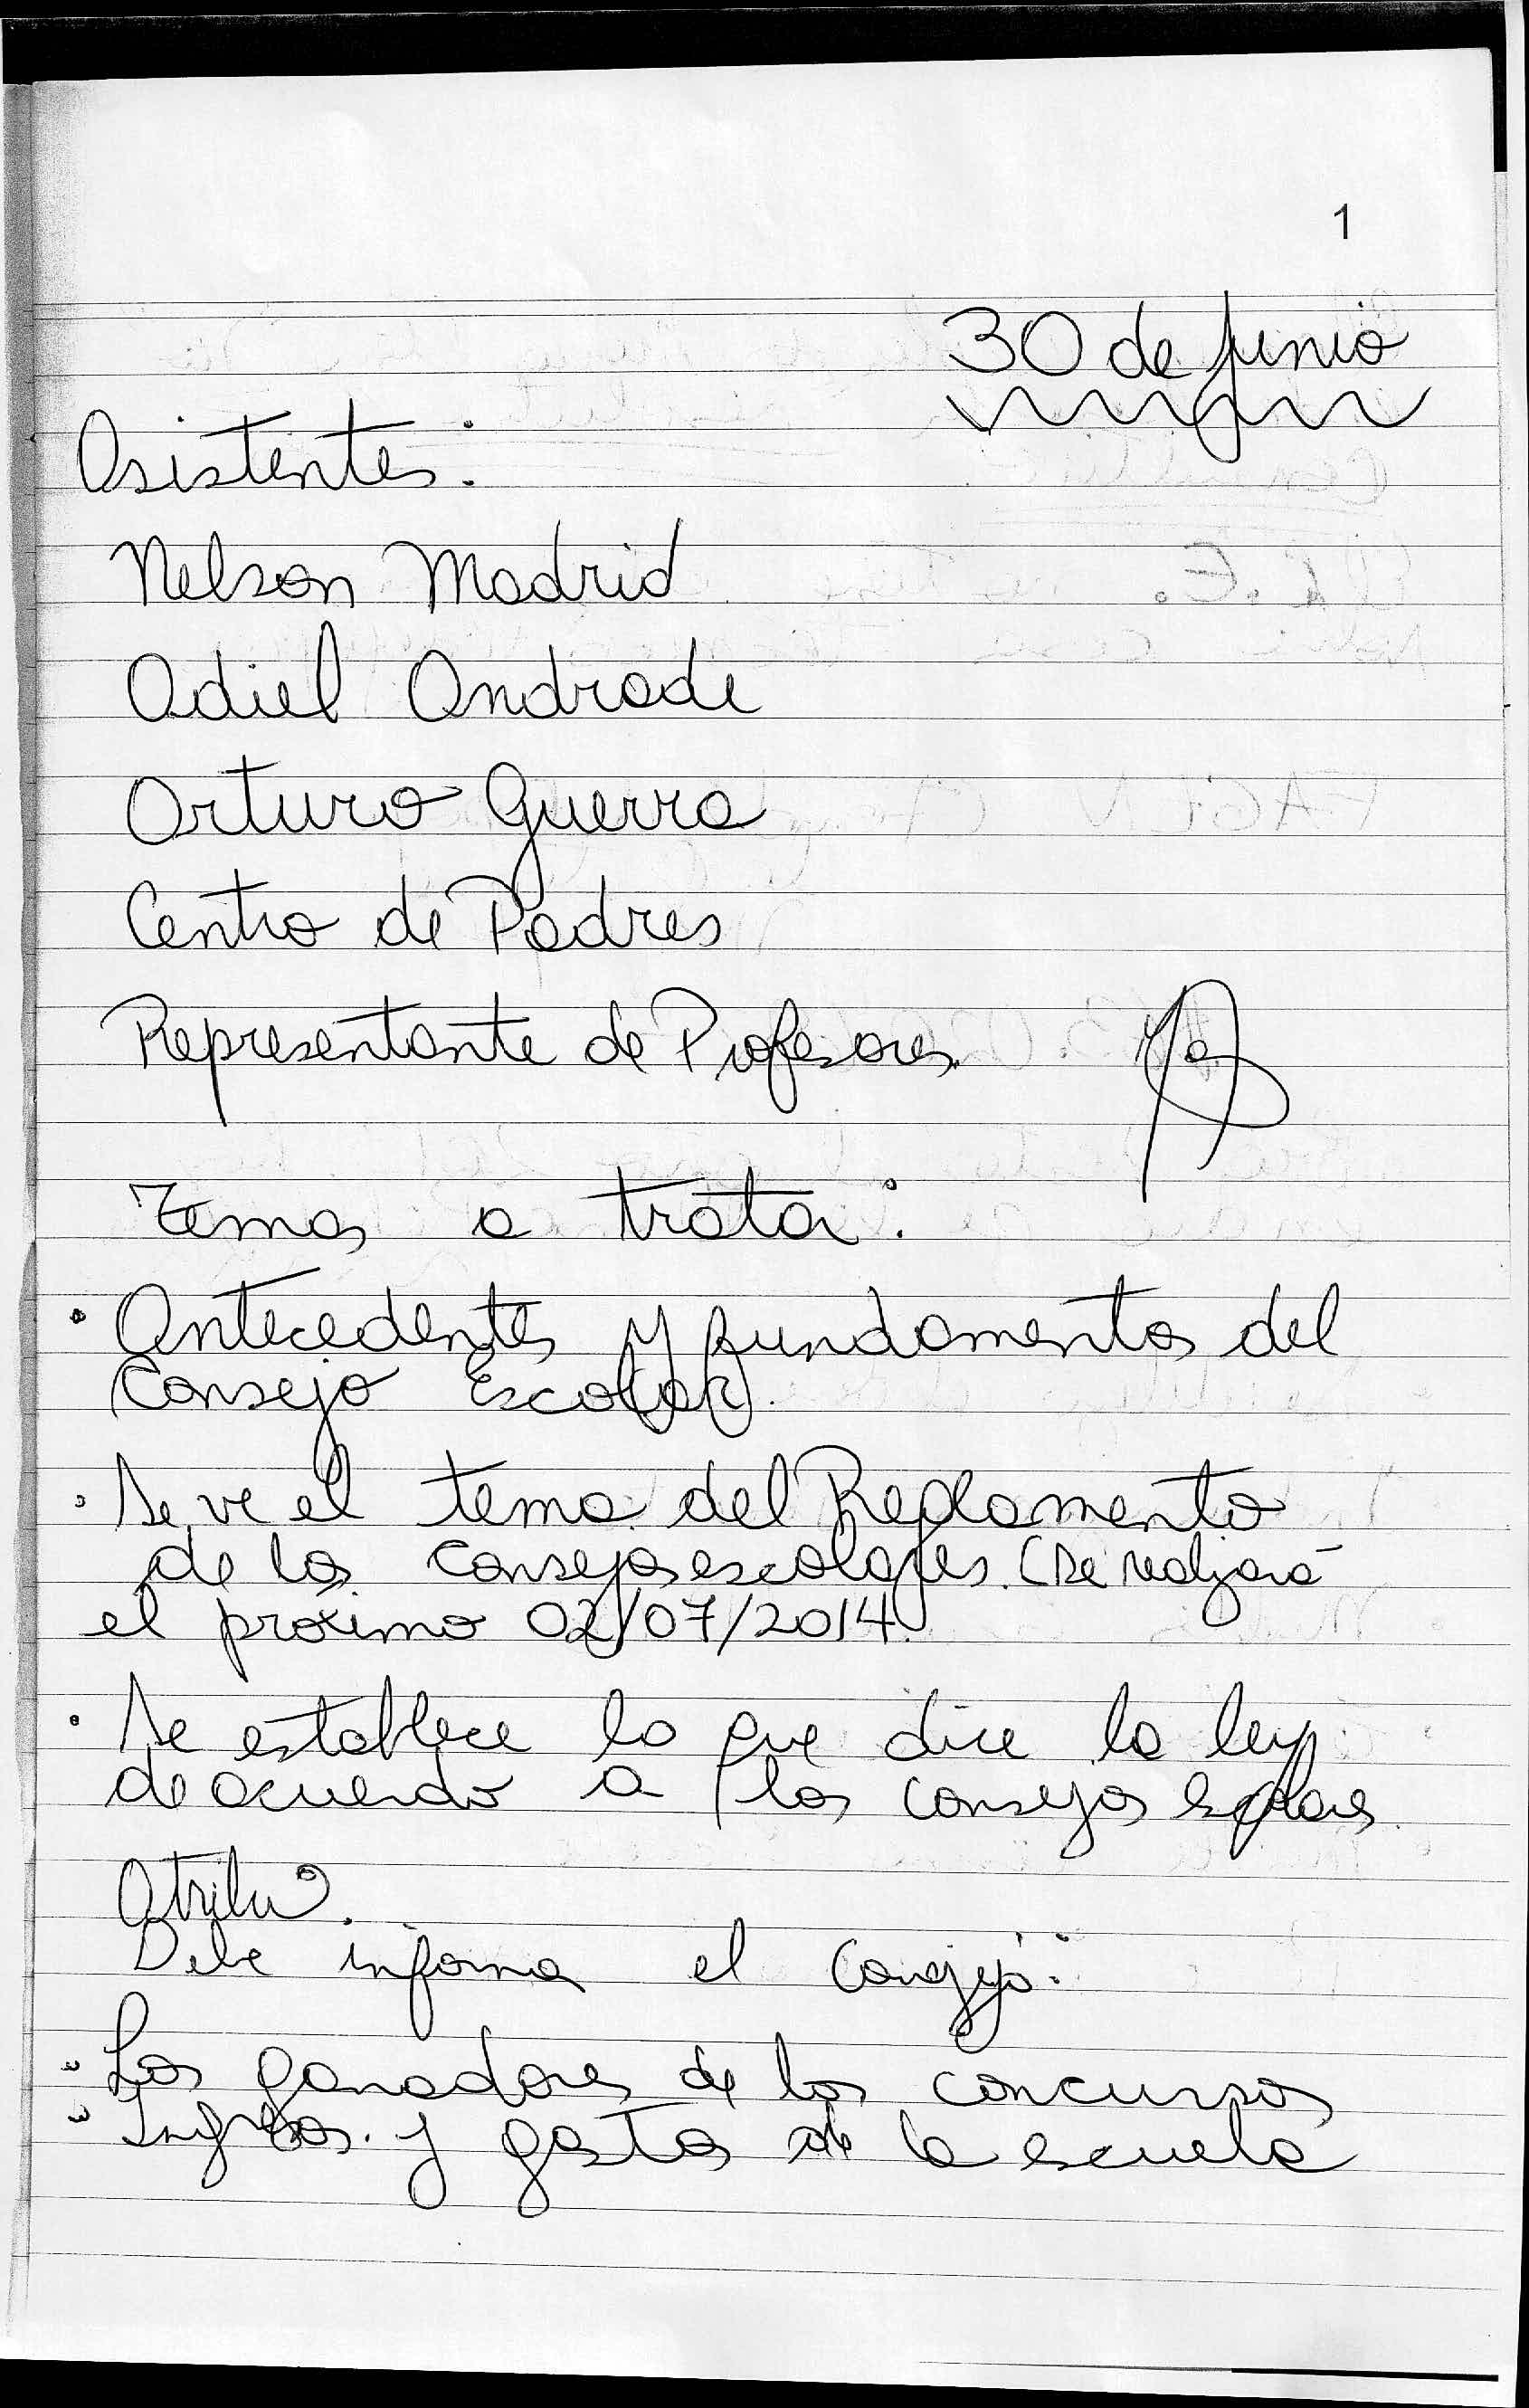 1
30 de junio
Asistentes:
Nelson Madrid
Adiel Andrade
Arturo Guerra
Centro de Padres
Representante de Profesores.
Temas a tratar:
· Antecedentes y fundamentos del
Consejo Escolar.
· Se ve el tema del Reglamento
de los consejos escolares. (Se realizará
el próximo 02/07/2014.
· Se establece lo que dice la ley
de acuerdo a los consejos escolares.
Debe informar el Consejo:
Los ganadores de los concursos
Ingresos. y gastos de la escuela